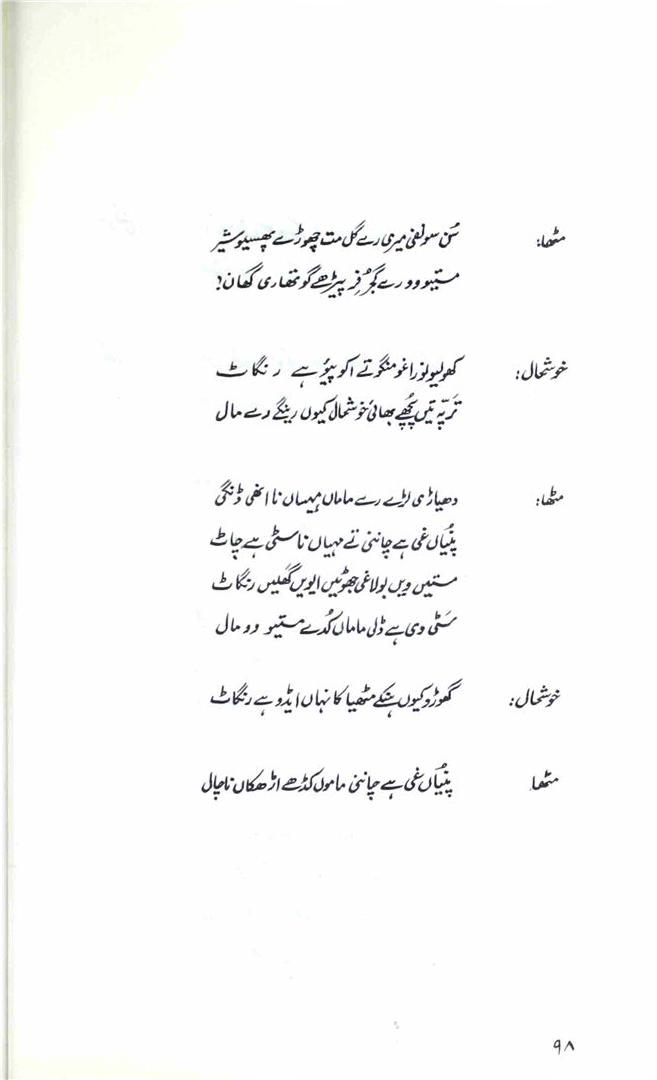 مٹھا: سُن سولفی میری رے گل مت چھوڑے پھسیو شیر
متیو وو رے گجر فِر پیڑھے گو تھاری گھان؟
خوشحال: کھولیو لو راغو منگوتے اکو پیؤ ہے رنگاٹ
ترپہ تیں پچُھے بھائی خوشحال کیوں رینگے دے مال
مٹھا: دھیاڑی لڑے رے ماماں مہیساں نا انھی ڈنگی
پُنیاں غی ہے چاننی تے مہیاں نا سٹی ہے چاٹ
متیں ویں بولاغی جھوٹیں ایویں گھلیں رنگاٹ
سَٹی وی ہے ڈلی ماماں کُدے متیو وو مال
خوشحال: گھوڑو کیوں ہنکے مٹھیا کانہاں ایڈو ہے رنگاٹ
مٹھا پُنیاں غی ہے چاننی ماموں کڈھے اڑھکاں نا چال
۹۸